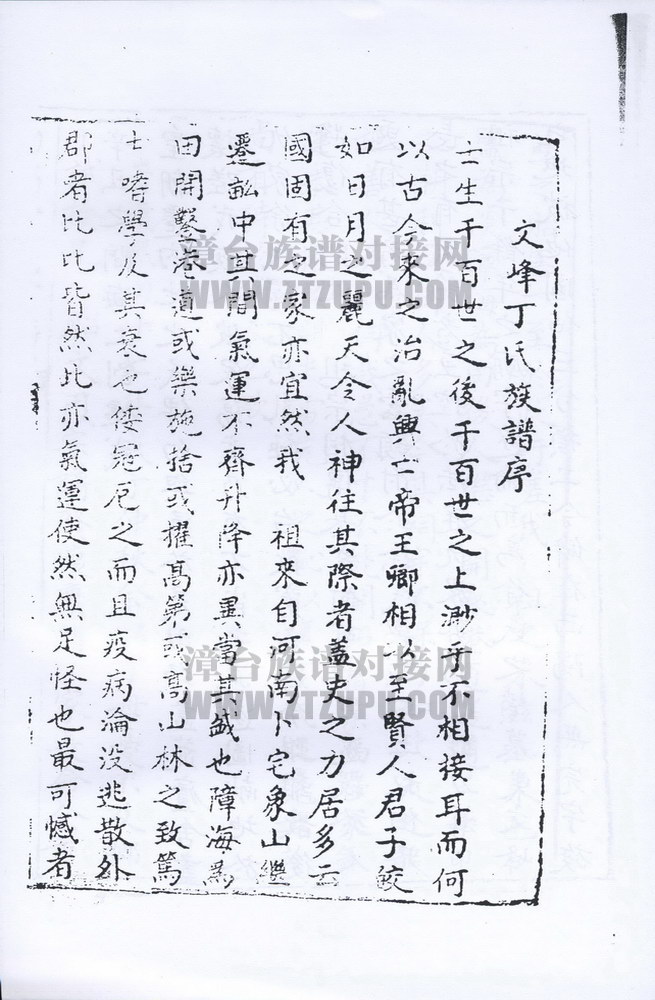 文峰丁氏族譜序
士生千百世之後千百世之上渺乎不相接耳而何
以古今來之治亂興亡帝王卿相以至賢人君子皎
如日月之麗天令人神往其際者盖史之力居多云
國固有之家亦宜然我 祖來自河南卜宅象山繼
遷 中其間氣運不齊升降亦異當其盛也障海爲
田開鑿港道或樂施捨或擢髙第或高山林之致篤
士嗜學及其衰也倭寇厄之而且疫病淪没逃散外
郡者比比皆然此亦氣運使然無足怪也最可憾者
漳台族谱对接网
WWW.ZTZUPU.COM
漳台族谱对接网
WWW.ZTZUPU.COM